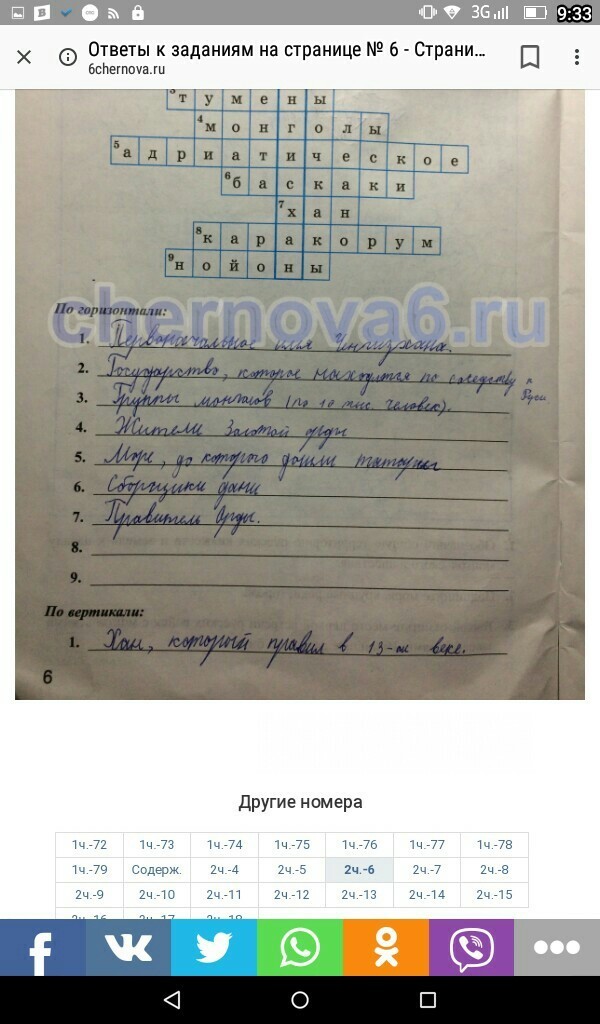 3G 9:33
Ответы к заданиям на странице № 6 - Страни...
6chernova.ru
3 тумены
4 монголы
5 адриатическое
6 баскаки
7 хан
8 каракорум
9 нойоны
chernova6.ru
По горизонтали:
1. Первоначальное имя Чингизхана.
2. Государство, которое находится по соседству
3. Группы монголов (по 10 тыс. человек).
4. Жители Золотой орды
5. Море, до которого дошли татары
6. Сборщики дани
7. Правитель Орды.
8.
9.
По вертикали:
1. Хан, который правил в 13-ом веке.
6
Другие номера
1ч.-72 1ч.-73 1ч.-74 1ч.-75 1ч.-76 1ч.-77 1ч.-78
1ч.-79 Содерж. 2ч.-4 2ч.-5 2ч.-6 2ч.-7 2ч.-8
2ч.-9 2ч.-10 2ч.-11 2ч.-12 2ч.-13 2ч.-14 2ч.-15
2ч.-16 2ч.-17 2ч.-18